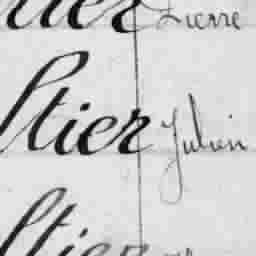 tier Pierre
ltier Julien
ltier